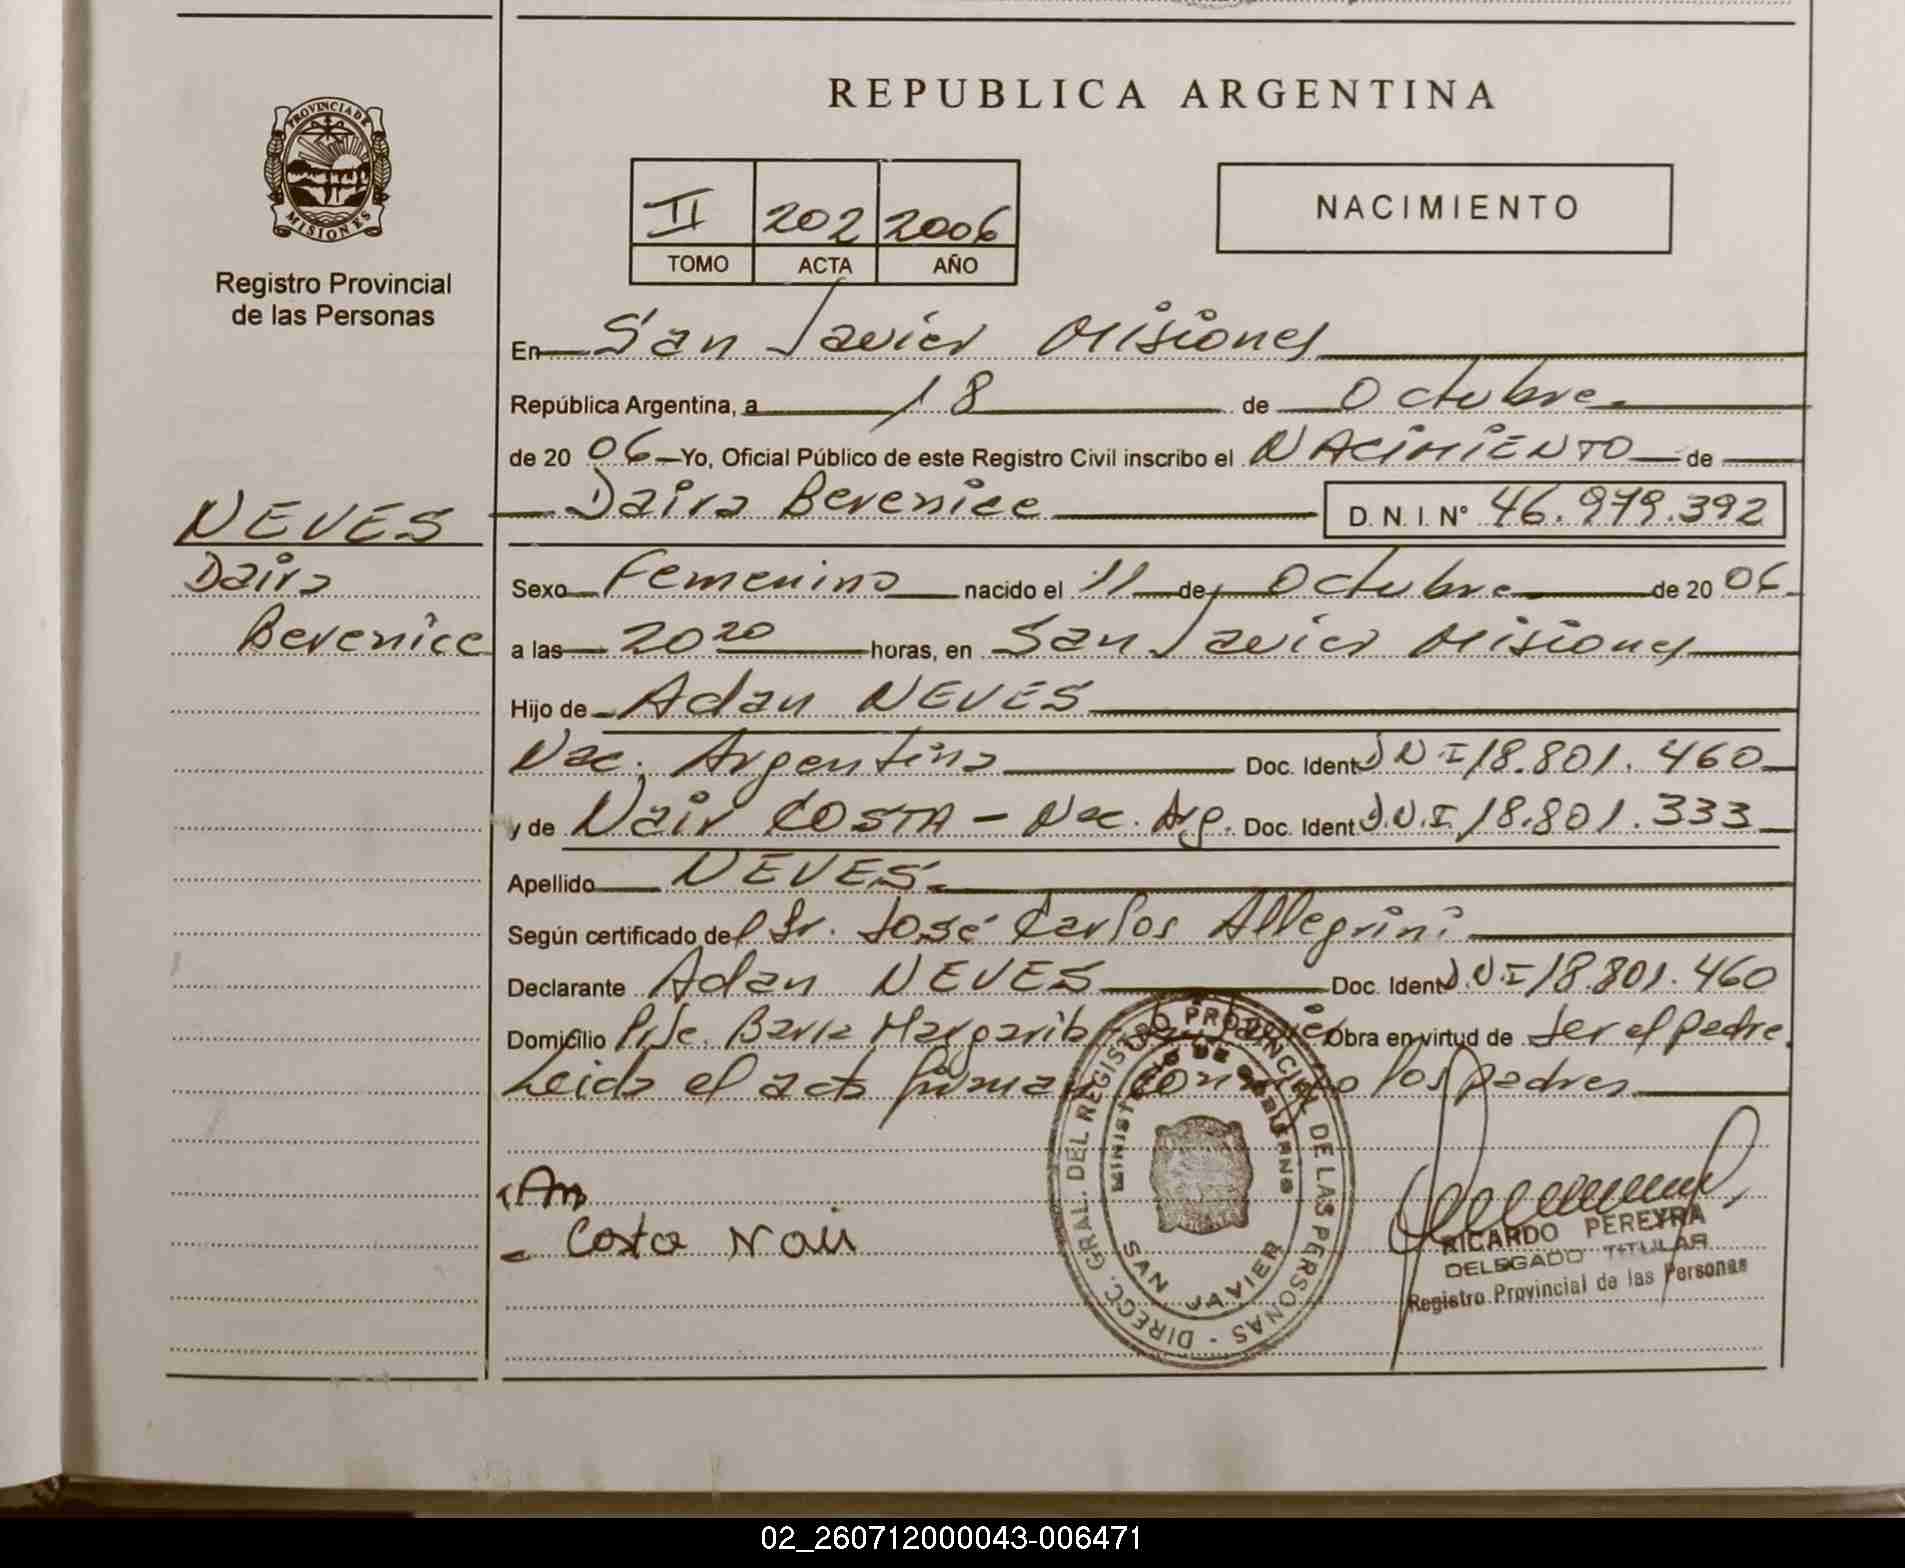 REPUBLICA ARGENTINA
PROVINCIA DE MISIONES
Registro Provincial
de las Personas
II 202 2006
TOMO ACTA AÑO
NACIMIENTO
En San Javier Misiones
República Argentina, a 18 de Octubre
de 20 06 Yo, Oficial Público de este Registro Civil inscribo el NACIMIENTO de
NEVES
Daira
Berenice
Daira Berenice D. N. I. N° 46.979.392
Sexo Femenino nacido el 11 de Octubre de 20 06
a las 20 20 horas, en San Javier Misiones
Hijo de Adan NEVES
Nac. Argentina Doc. Ident D N I 18.801.460
y de Nair COSTA - Nac. Arg. Doc. Ident D.N.I. 18.801.333
Apellido NEVES.
Según certificado del Dr. José Carlos Allegrini
Declarante Adan NEVES Doc. Ident D.N.I 18.801.460
Domicilio Pje. Barra Obra en virtud de ser el padre.
Leida el acta firman conmigo los padres
Costa Nair
DIRECC. GRAL. DEL REGISTRO PROVINCIAL DE LAS PERSONAS -
MINISTERIO DE GOBIERNO
SAN JAVIER
RICARDO PEREYRA
DELEGADO TITULAR
Registro Provincial de las Personas
02_260712000043-006471